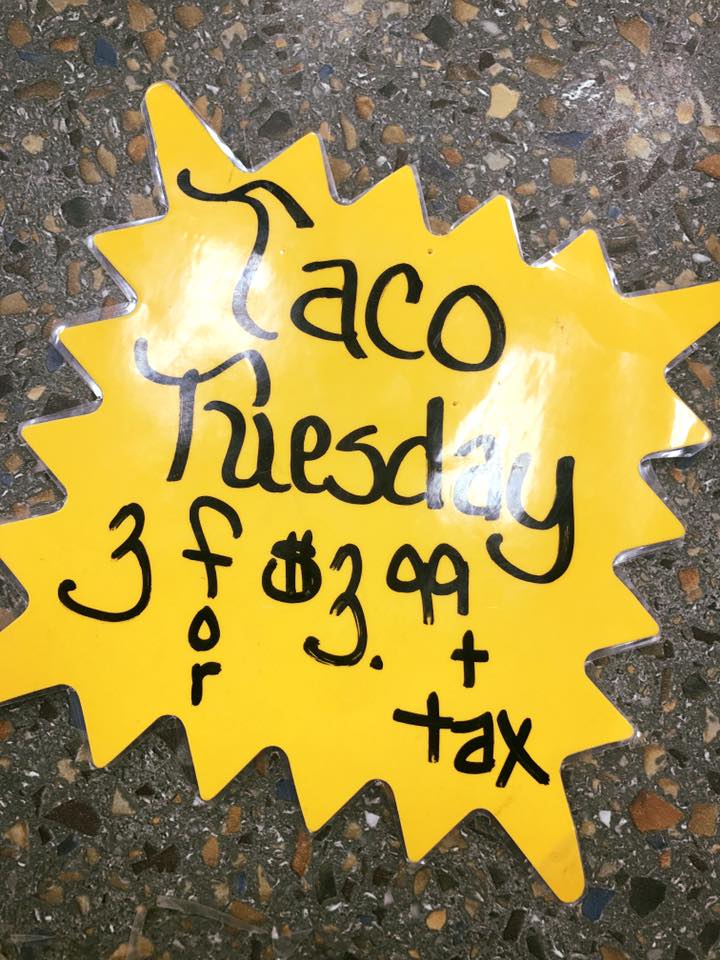 Taco
Tuesday
3 for $3.99
+
tax